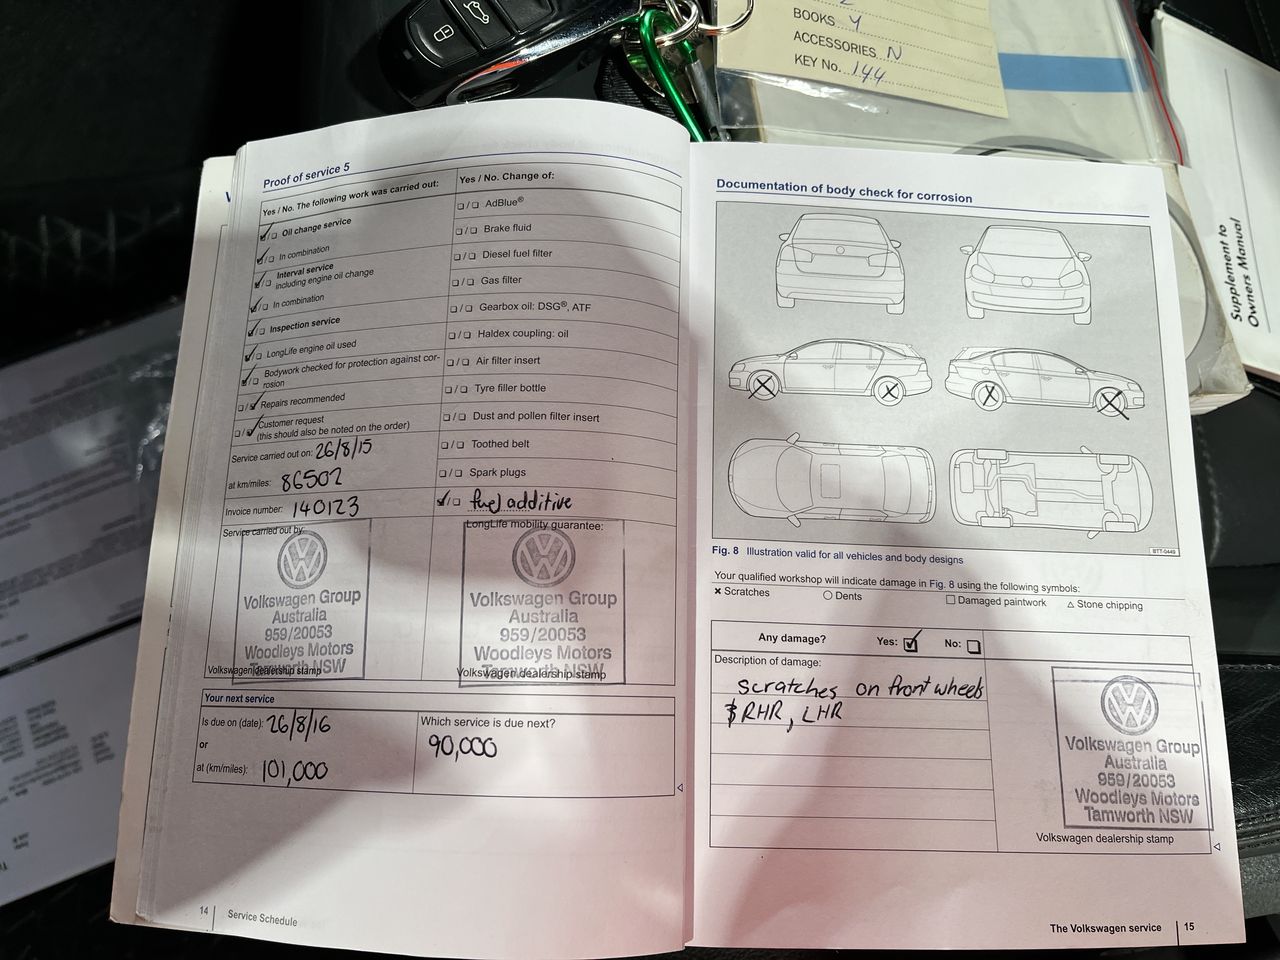 BOOKS Y
ACCESSORIES N
KEY No. 144
Supplement to
Owners Manual
Proof of service 5
Yes / No. The following work was carried out:
Oil change service
In combination
Interval service
including engine oil change
In combination
Inspection service
LongLife engine oil used
Bodywork checked for protection against cor-
rosion
Repairs recommended
Customer request
(this should also be noted on the order)
Service carried out on: 26/8/15
at km/miles: 86502
Invoice number: 140123
Yes / No. Change of:
AdBlue®
Brake fluid
Diesel fuel filter
Gas filter
Gearbox oil: DSG®, ATF
Haldex coupling: oil
Air filter insert
Tyre filler bottle
Dust and pollen filter insert
Toothed belt
Spark plugs
fuel additive
Service carried out by:
Volkswagen Group
Australia
959/20053
Woodleys Motors
Tamworth NSW
Volkswagen dealership stamp
LongLife mobility guarantee:
Volkswagen Group
Australia
959/20053
Woodleys Motors
Tamworth NSW
Volkswagen dealership stamp
Your next service
Is due on (date): 26/8/16
or
at (km/miles): 101,000
Which service is due next?
90,000
14 Service Schedule
Documentation of body check for corrosion
BTT-0449
Fig. 8 Illustration valid for all vehicles and body designs
Your qualified workshop will indicate damage in Fig. 8 using the following symbols:
× Scratches ○ Dents □ Damaged paintwork △ Stone chipping
Any damage? Yes: No:
Description of damage:
scratches on front wheels
RHR, LHR
Volkswagen Group
Australia
959/20053
Woodleys Motors
Tamworth NSW
Volkswagen dealership stamp
The Volkswagen service 15